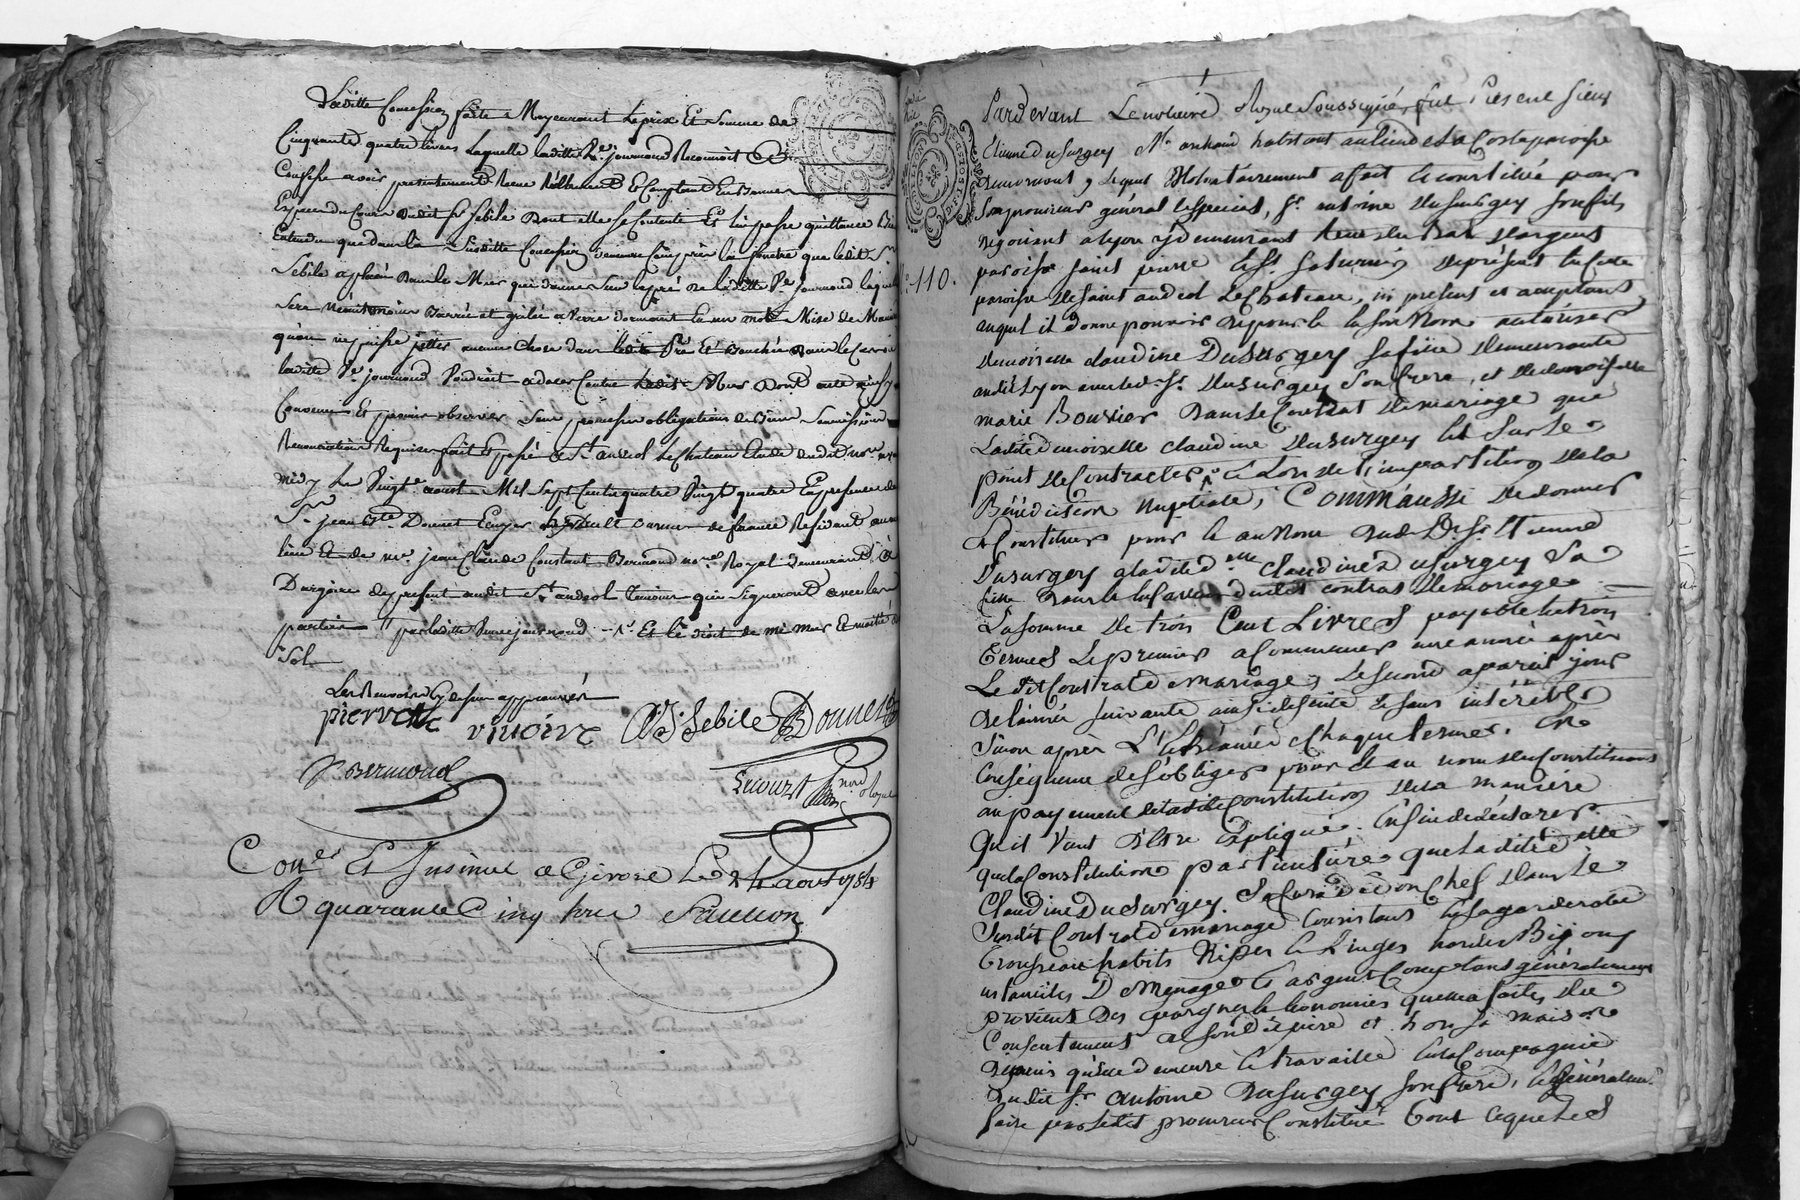 Laditte Concession faitte Moyennant le prix Et Somme de
Cinquante quatre livres laquelle laditte Ve. journoud Reconnoit Et
Confesse avoir presentement Receu Réellement Et Comptant En Bonnes
Especes du Cours dudit Sr. Sebile Dont elle se Contente Et l'en passe quittance Bien
Entendu que dans la Susditte Concession demeure Comprise la fenetre que ledit Sr.
Sebile a placé dans le Mur qui donne Sur le pré de laditte Ve. journoud laquelle
Sera Neantmoins Barrée et grilée a Verre dormant En un mot Mise de Maniere
qu'on ne puisse jetter aucune Chose dans ledit Pré Et Bouchée dans le Cas où
laditte Ve. journoud Voudroit adosser Contre ledit Mur Dont acte ainsy
Convenu Et promis observer Sous promesses obligations de Biens Soumissions
Renonciations Requises fait Et passé a St. andeol le Chateau Etude dudit nore. avant
midy Le Vingte. aoust Mil Sept Cents quatre Vingt quatre En presence de
Sr. jean Bte. Donnet Ecuyer de france Residant audit
lieu Et de me. jean Claude Constant Bermond nore. Royal demeurant à
Dargoire de present audit St. andeol Temoins qui Signeront avec les
parties // par laditte Veuve journoud Et le droit de mi Mur Et moitié de
Sol
Les Renvoits Cy dessus approuvés
pierrette vinoire Sebile Donnet
Bermond
Lecourt nore. Royal
Conlé. Et Insinué a Givors Le 24 aout 1784
R quarante Cinq sous
Pardevant Le notaire Royal Soussigné, fut Present Sieur
Etienne Dusurgey Md. habitant au lieu de La Coste paroisse
de mornant, Lequel Volontairement a fait & constitué pour
Son procureur général & special, Sr. antoine Dusurgey Son fils
négociant a lyon y demeurant
paroisse Saint pierre & St. Saturnin De présent en Cette
N.o 110.
paroisse de Saint andeol Le chateau, ici present et acceptant
auquel il donne pouvoir de pour & en Son Nom autoriser
demoiselle claudine Dusurgey Sa fille demeurante
audit Lyon avec led. Sr. Dusurgey Son frere, et de demoiselle
marie Bouvier Dans le Contrat de mariage que
Ladite demoiselle claudine Dusurgey Est Sur le
point de Contracter & Lors de L'impartition de la
Bénédiction Nuptiale, Comm'aussi de donner
& Constituer pour & au Nom dud. Sr. Etienne
Dusurgey a ladite dlle. claudine Dusurgey Sa
fille Dans & en faveur dudit contrat de mariage
La Somme de trois Cent Livres payable en trois
termes Le premier a Commencer une année après
Le dit Contrat de mariage, Le Second a pareil jour
de l'année Suivante ainsi de Suite & Sans intérêts
Sinon après L'Echéance de chaque terme. En
Conséquence de s'obliger pour & au nom du Constituant
au payement de ladite Constitution de la maniere
Qu'il Vient d'être Expliqué. Enfin de declarer
que la Constitution particulière que ladite dlle.
Claudine Dusurgey Se fera de Son Chef Dans le
Susdit Contrat de mariage Consistant En Sa garderobe
trousseau habits Nipes & Linges hardes Bijoux
ustanciles De Menage & argent Comptant généralement
provient Des epargnes & économies qu'elle a faites du
Consentement de Son dit pere et hors Sa maison
depuis qu'elle demeure & travaille En la Compagnie
dudit Sr. antoine Dusurgey Son frere, & Généralemt.
faire par ledit procureur Constitué tout ce que led.